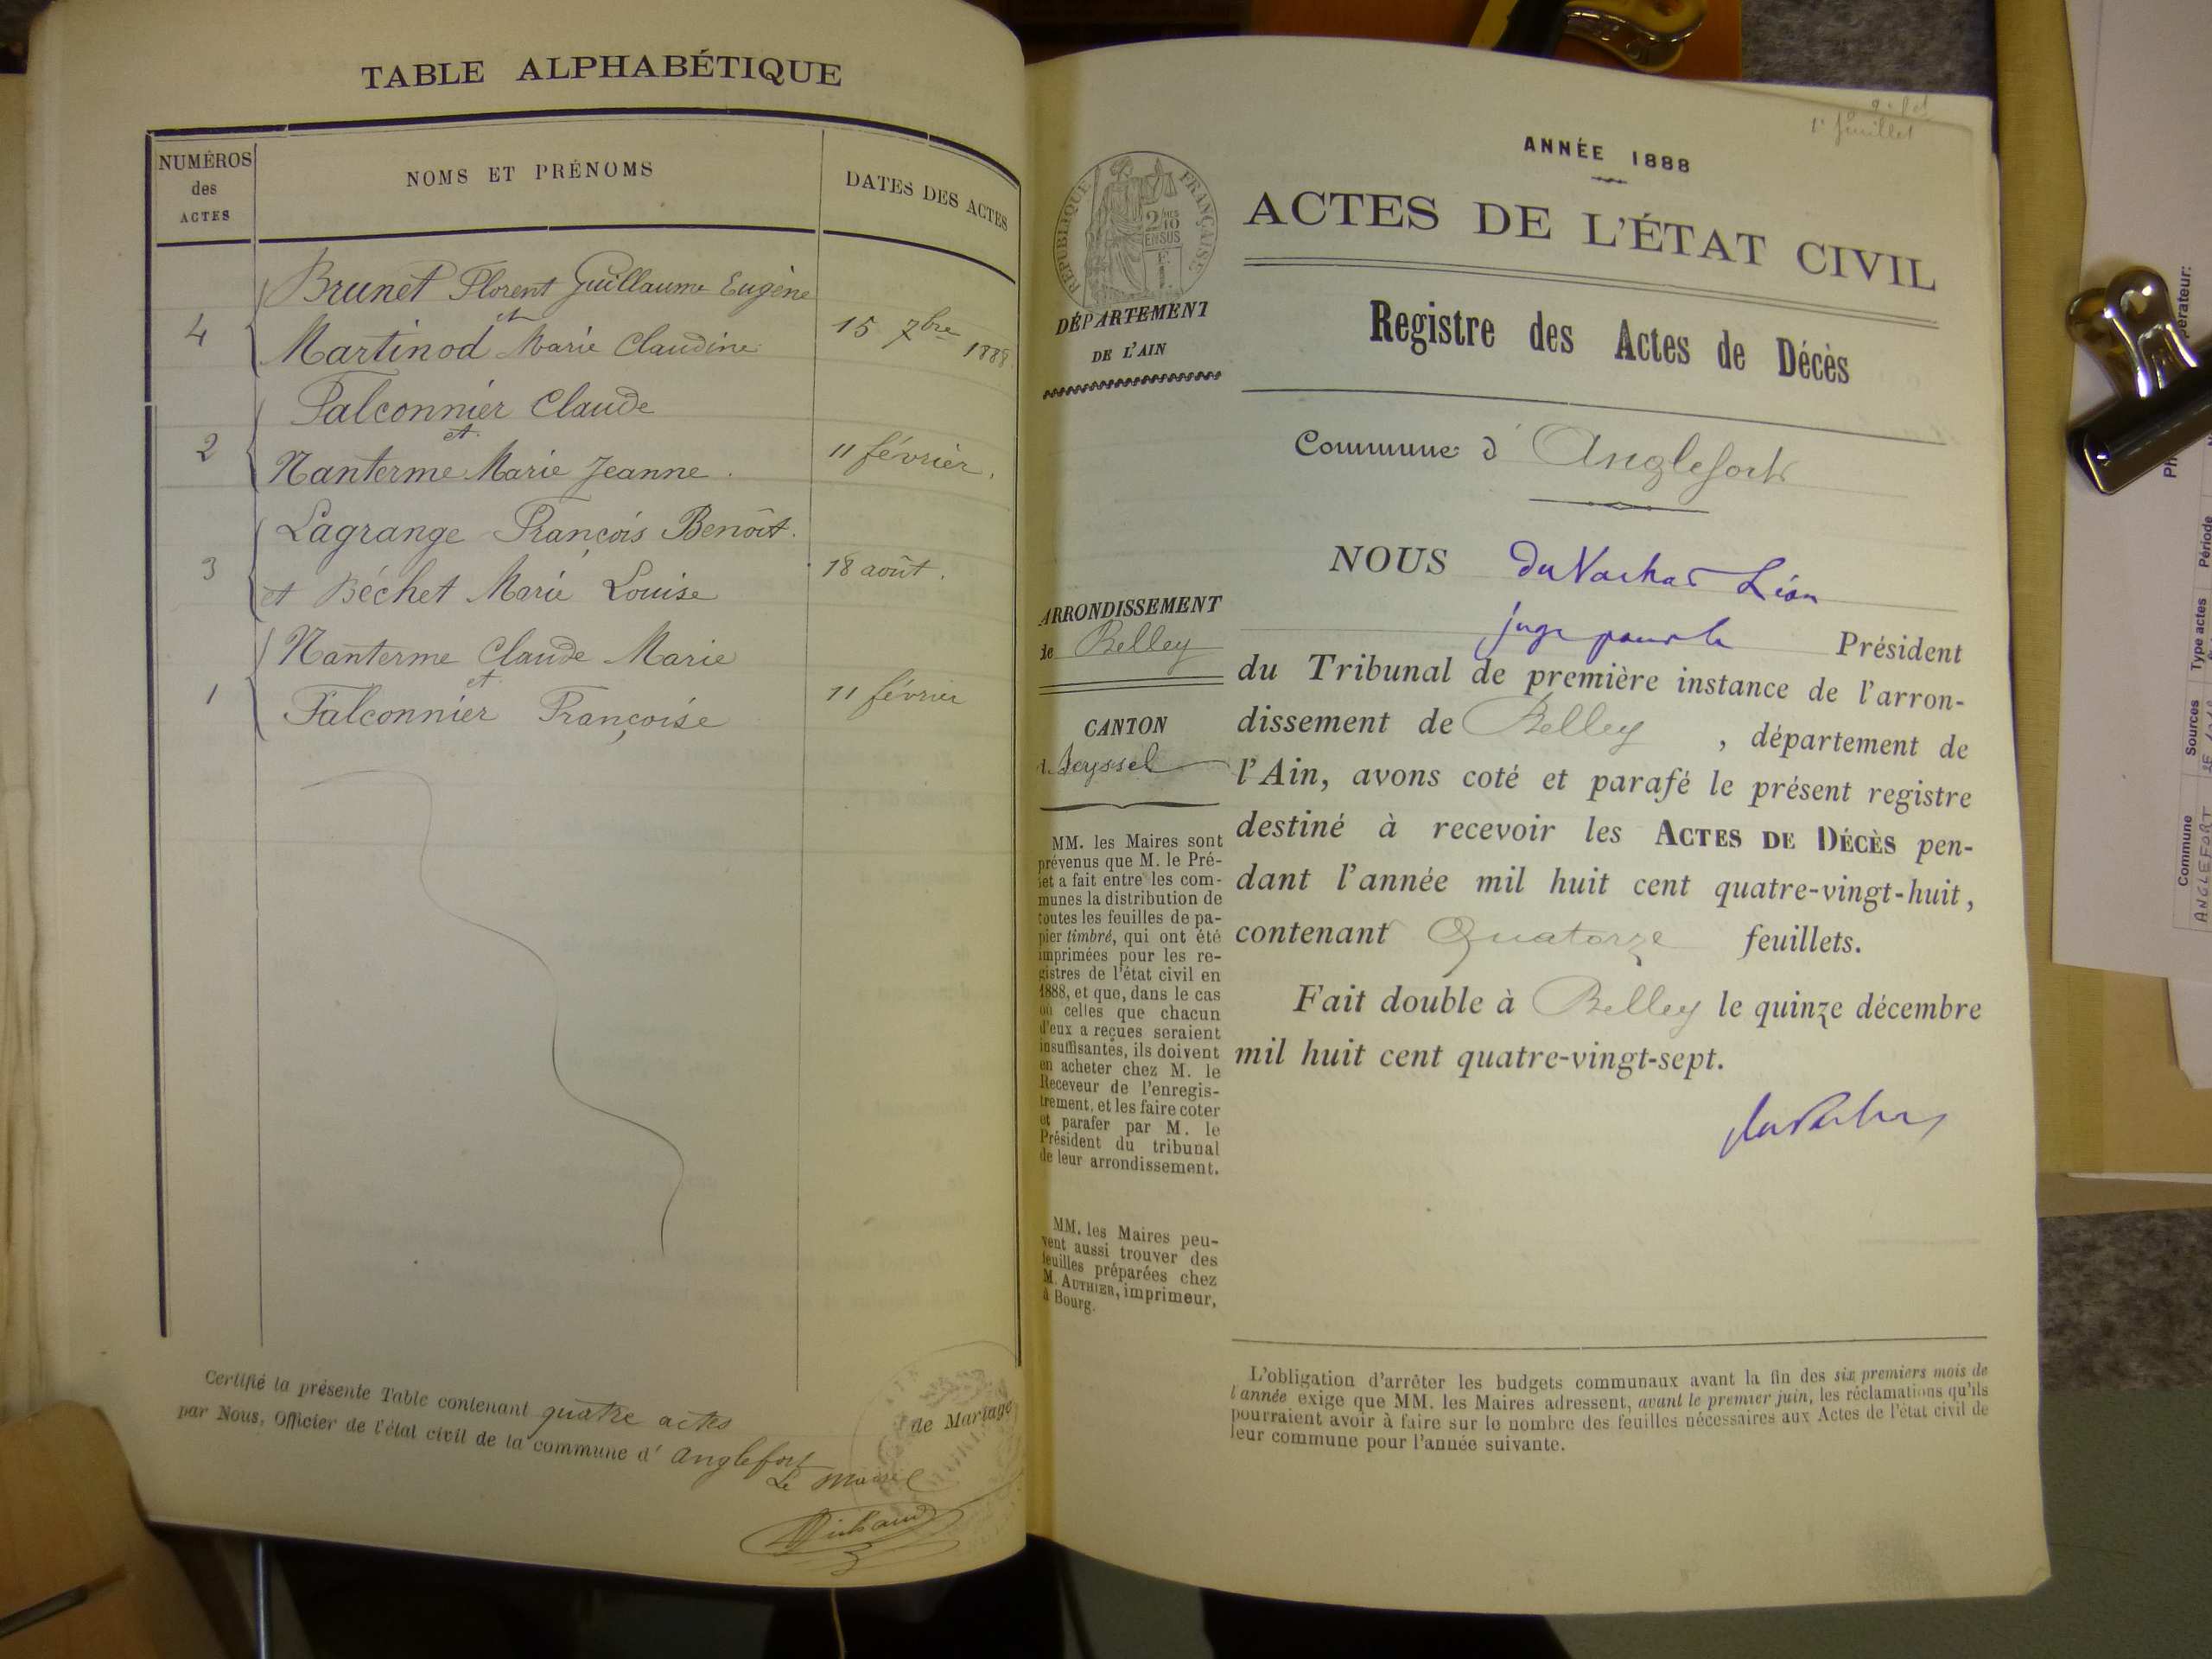 TABLE ALPHABÉTIQUE
NUMÉROS
des
ACTES
NOMS ET PRÉNOMS
DATES DES ACTES
Brunet Florent Guillaume Eugène
et
4 Martinod Marie Claudine 15 7bre 1888
Falconnier Claude
et
2 Nanterme Marie Jeanne. 11 février.
Lagrange François Benoît.
3 et Béchet Marie Louise 18 août.
Nanterme Claude Marie
et
1 Falconnier Françoise 11 février
Certifié la présente Table contenant quatre actes de Mariage
par Nous, Officier de l'état civil de la commune d' Anglefort
Le Maire
Michaud
1er feuillet
ANNÉE 1888
RÉPUBLIQUE FRANÇAISE
2/10 EN SUS
ACTES DE L'ÉTAT CIVIL
DÉPARTEMENT
DE L'AIN
Registre des Actes de Décès
Commune d' Anglefort
ARRONDISSEMENT
de Belley
CANTON
de Seyssel
MM. les Maires sont
prévenus que M. le Pré-
fet a fait entre les com-
munes la distribution de
toutes les feuilles de pa-
pier timbré, qui ont été
imprimées pour les re-
gistres de l'état civil en
1888, et que, dans le cas
où celles que chacun
d'eux a reçues seraient
insuffisantes, ils doivent
en acheter chez M. le
Receveur de l'enregis-
trement, et les faire coter
et parafer par M. le
Président du tribunal
de leur arrondissement.
MM. les Maires peu-
vent aussi trouver des
feuilles préparées chez
M. AUTHIER, imprimeur,
à Bourg.
NOUS du Vachat Léon
juge pour le Président
du Tribunal de première instance de l'arron-
dissement de Belley, département de
l'Ain, avons coté et parafé le présent registre
destiné à recevoir les ACTES DE DÉCÈS pen-
dant l'année mil huit cent quatre-vingt-huit,
contenant Quatorze feuillets.
Fait double à Belley le quinze décembre
mil huit cent quatre-vingt-sept.
L'obligation d'arrêter les budgets communaux avant la fin des six premiers mois de
l'année exige que MM. les Maires adressent, avant le premier juin, les réclamations qu'ils
pourraient avoir à faire sur le nombre des feuilles nécessaires aux Actes de l'état civil de
leur commune pour l'année suivante.
Commune
ANGLEFORT
Sources
Type actes
Période